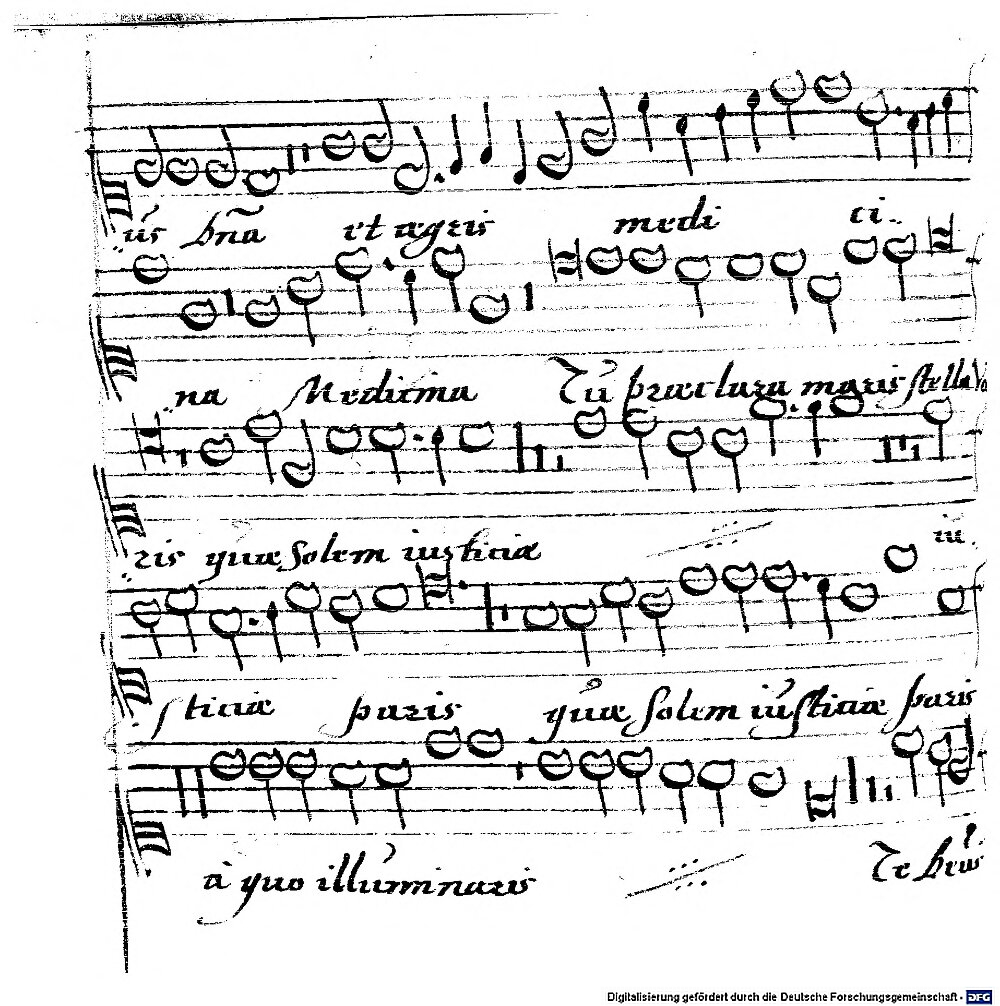 us bña et ægris medi ci-
na Medicina Tu præclara maris stella Vo
cis quæ solem iusticiæ iu
sticiæ paris quæ solem iusticiæ paris
à quo illuminaris Te Deus
Digitalisierung gefördert durch die Deutsche Forschungsgemeinschaft - DFG